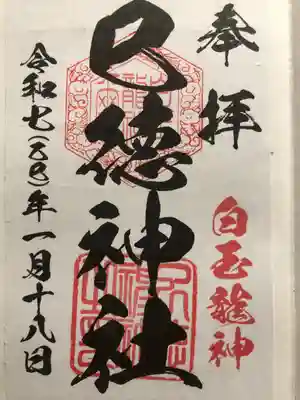 奉拝
白玉龍神
巳徳神社
令和七(乙巳)年一月十八日